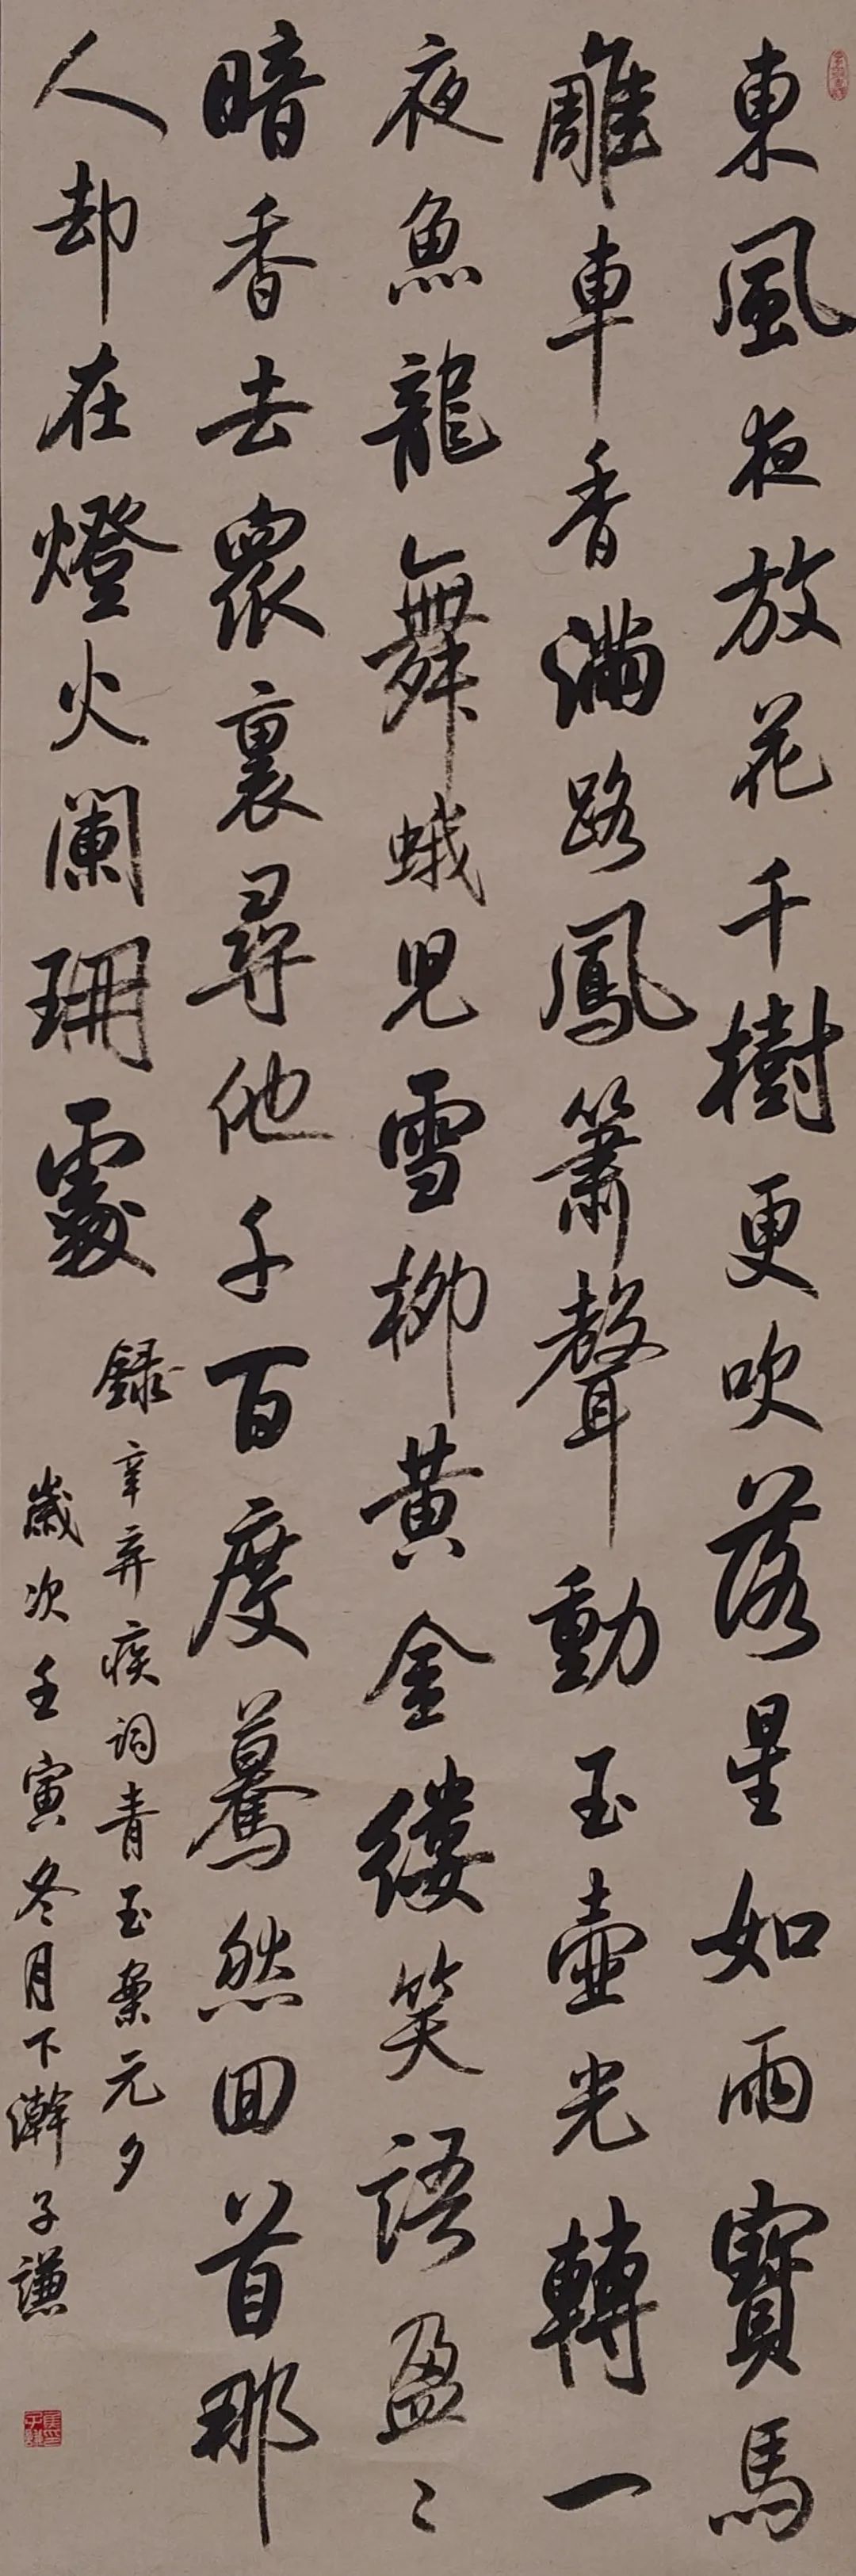 東風夜放花千樹更吹落星如雨寶馬
雕車香滿路鳳簫聲動玉壺光轉一
夜魚龍舞蛾兒雪柳黃金縷笑語盈〻
暗香去衆裏尋他千百度驀然回首那
人却在燈火闌珊處
錄辛弃疾詞青玉案元夕
歲次壬寅冬月下澣子謙